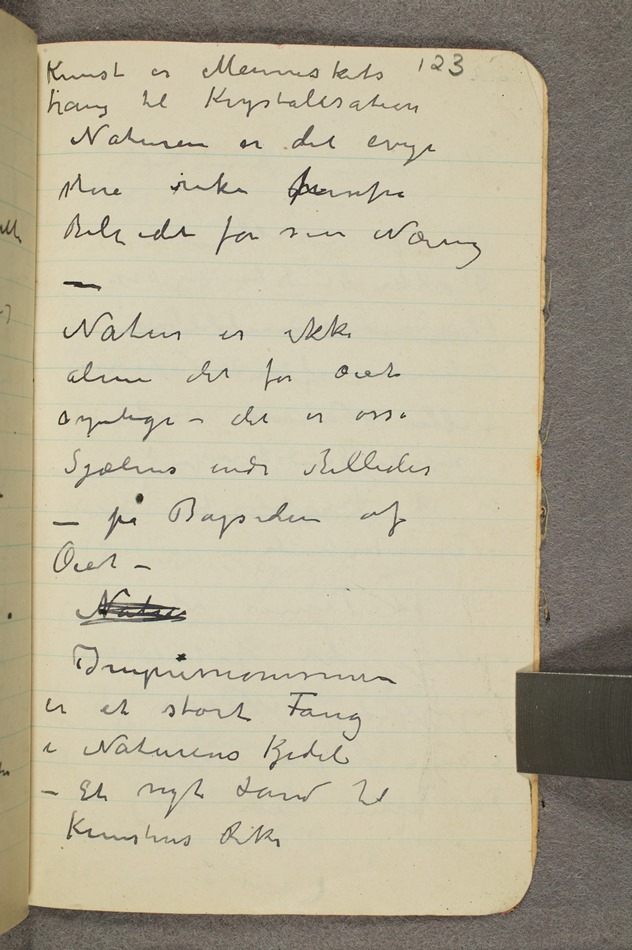 123
Kunst er Menneskets
trang til Krystalisation
Naturen er det evige
store rike hvorfra
den for sin Næring
—
Natur er ikke
alene det for øiet
synlige – det er osså
Sjælens indre Billeder
– på Bagsiden af
Øiet –
Natur
Impressionismen
er et stort Fang
i Naturens Kjedel
– Et nyt Land til
Kunstens Rike